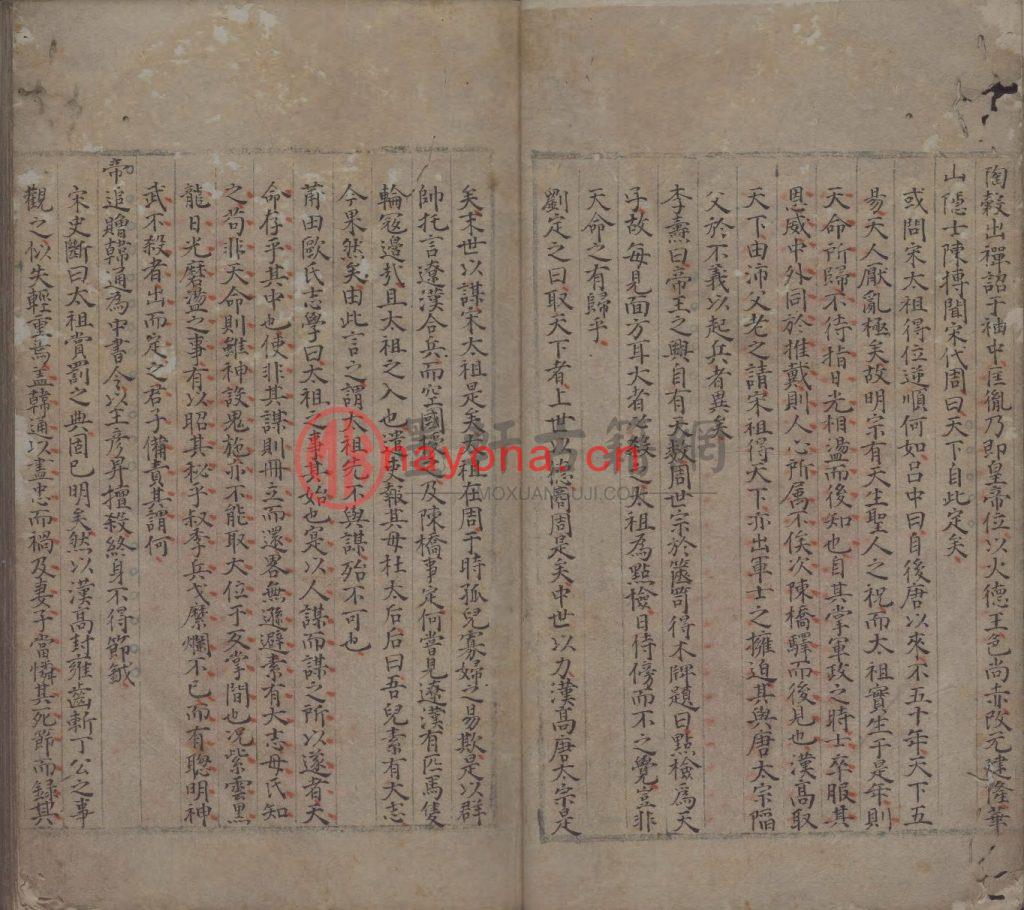 陶穀出禪詔于袖中匡胤乃即皇帝位以火德王色尚赤改元建隆華
山隱士陳摶聞宋代周曰天下自此定矣
或問宋太祖得位逆順何如呂中曰自後唐以來不五十年天下五
易天人厭亂極矣故明宗有天生聖人之祝而太祖實生于是年則
天命所歸不待指日光相盪而後知也自其掌軍政之時士卒服其
恩威中外同於推戴則人心所属不俟次陳橋驛而後見也漢高取
天下由沛父老之請宋祖得天下亦出軍士之擁迫其與唐太宗陷
父於不義以起兵者異矣
李燾曰帝王之興自有天數周世宗於篋笥得木牌題曰點檢為天
子故每見面方耳大者必殺之太祖為點檢日侍傍而不之覺豈非
天命之有歸乎
劉定之曰取天下者上世以德商周是矣中世以力漢高唐太宗是
矣末世以謀宋太祖是矣太祖在周于時孤兒寡婦之易欺是以群
帥托言遼漢合兵而空國授之及陳橋事定何嘗見遼漢有匹馬隻
輪寇邊哉且太祖之入也遣吏報其母杜太后后曰吾兒素有大志
今果然矣由此言之謂太祖先不與謀殆不可也
莆田歐氏志學曰太祖之事其始也寔以人謀而謀之所以遂者天
命存乎其中也使非其謀則冊立而還畧無遜避素有大志母氏知
之苟非天命則雖神設鬼施亦不能取大位于反掌間也况紫雲黑
龍日光磨盪之事有以昭其秘乎叔季兵戈縻爛不已而有聰明神
武不殺者出而定之君子備責其謂何
帝追贈韓通為中書令以王彦昇擅殺終身不得節鉞
宋史斷曰太祖賞罰之典固已明矣然以漢高封雍齒斬丁公之事
觀之似失輕重焉盖韓通以盡忠而禍及妻子當憐其死節而錄其
墨軒古籍網
nayona.cn
MOXUANGUJI.COM